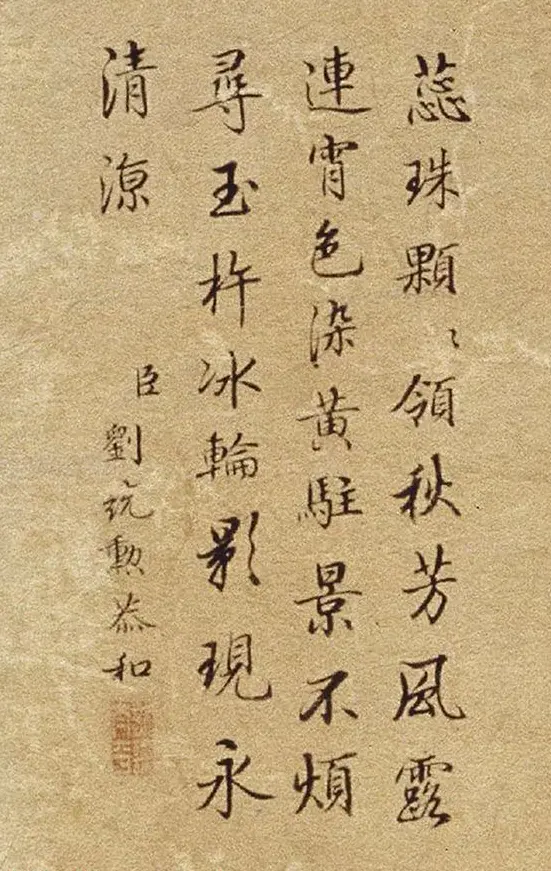 蕊珠顆〻領秋芳風露
連宵色染黃駐景不煩
尋玉杵冰輪影現永
清涼
臣劉統勳恭和